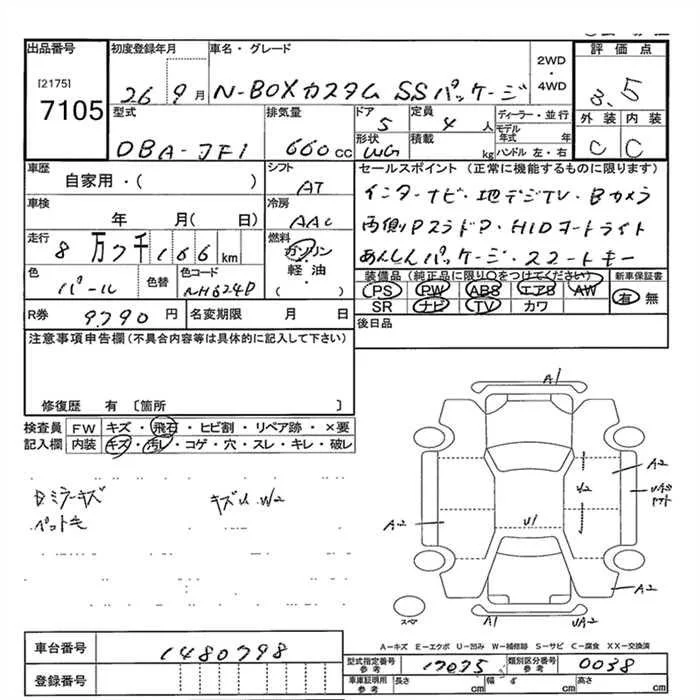 出品番号
[2175]
7105
初度登録年月
26 9月
車名・グレード
N-BOXカスタム SSパッケージ
2WD
・
4WD
評価点
3.5
型式
DBA-JF1
排気量
660cc
ドア
5
定員
4人
形状
WG
積載
kg
ディーラー・並行
モデル年式 年
ハンドル 左・右
外装 内装
C C
車歴
自家用・( )
シフト
AT
セールスポイント (正常に機能するものに限ります)
インターナビ・地デジTV・Bカメラ
両側Pスラドア・HIDオートライト
あんしんパッケージ・スマートキー
車検
年 月( 日)
冷房
AAC
走行
8万7千166km
燃料
ガソリン
・
軽・油
( )
色
パール
色替
色コード
NH624P
装備品 (純正品に限り○をつけてください)
PS PW ABS エアB AW
SR ナビ TV カワ
新車保証書
有 無
R券
9790円
名変期限 月 日
後日品
注意事項申告欄 (不具合内容等は具体的に記入して下さい)
修復歴 有 〔箇所 〕
検査員記入欄
FW キズ・飛石・ヒビ割・リペア跡・×要
内装 キズ・汚レ・コゲ・穴・スレ・キレ・破レ
Bミラーキズ
ペット毛
キズU W2
A1
A2
W2
A2
U1
A2
スペア
A1
UA2
A-キズ E-エクボ U-凹み W-補修跡 S-サビ C-腐食 XX-交換済
車台番号
1480798
登録番号
型式指定番号
参考
17075
類別区分番号
参考
0038
車車証項用
参考
長さ cm
幅 cm
高さ cm